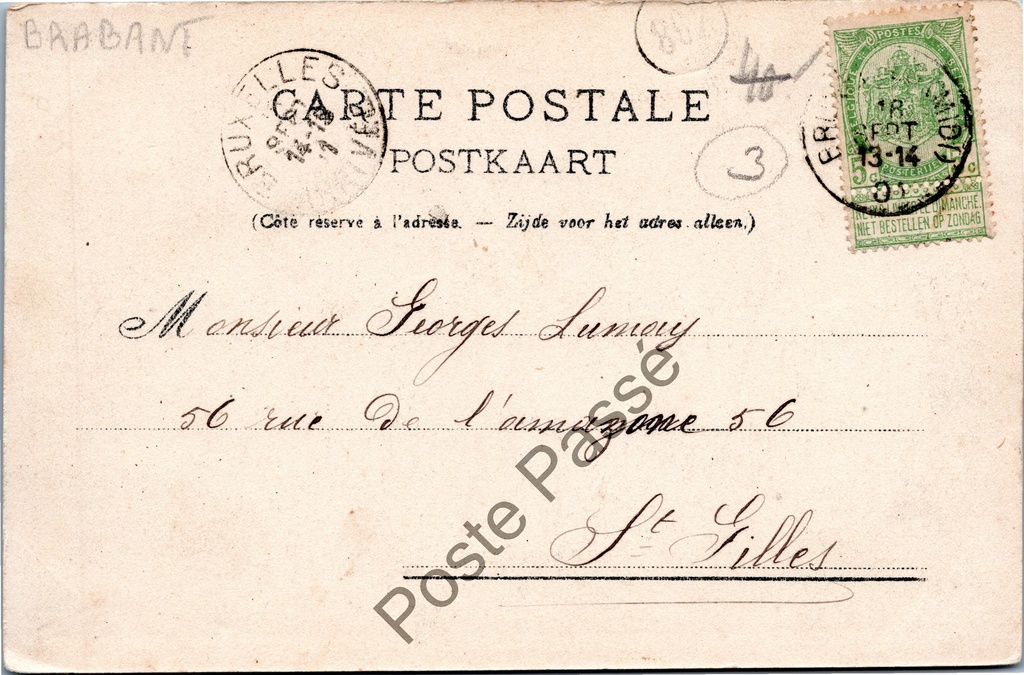 BRABANT
CARTE POSTALE
POSTKAART
(Côté réservé à l'adresse. — Zijde voor het adres alleen.)
BRUXELLES
14-15
ARRIVÉE
3
POSTES
5 c
18
SEPT
13-14
(MIDI)
NE PAS LIVRER LE DIMANCHE
NIET BESTELLEN OP ZONDAG
Monsieur Georges Lumay
56 rue de l'amazone 56
St Gilles
Poste Passé